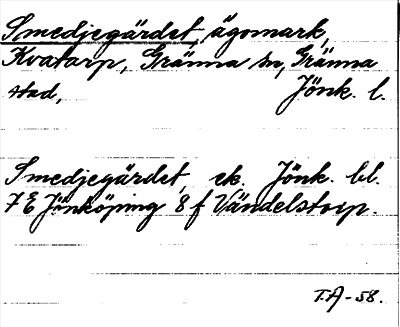 Smedjegärdet, ägomark,
Kvatarp, Gränna sn, Gränna
stad, Jönk. l.
Smedjegärdet, ek. Jönk. bl.
7E Jönköping 8 f Vändelstorp.
T.A-58.